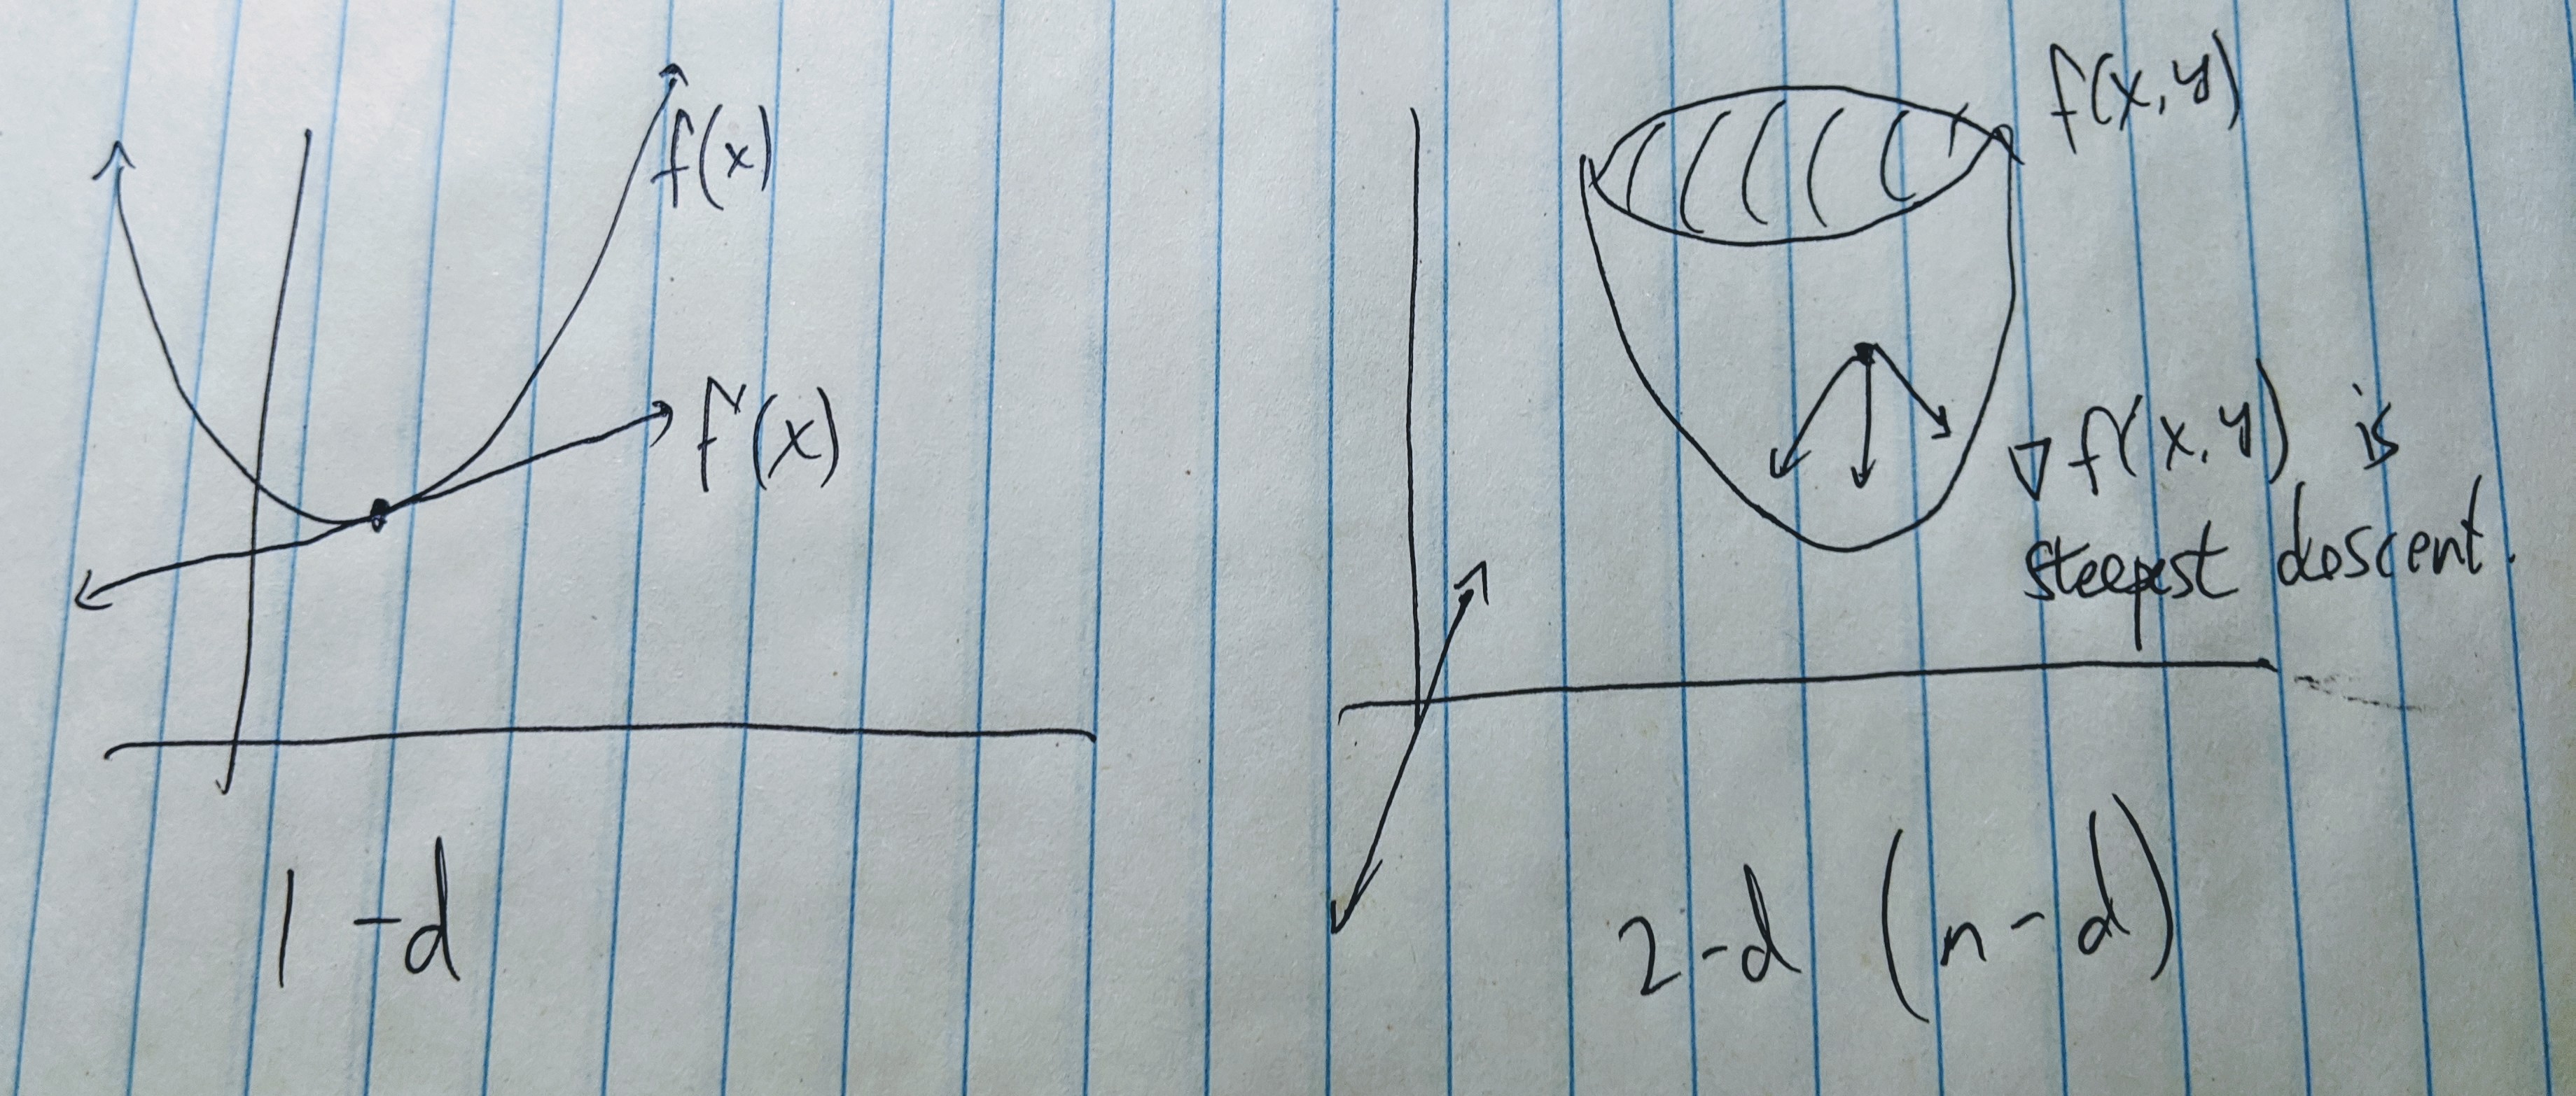 f(x)
f'(x)
1-d
f(x,y)
∇f(x,y) is
steepest descent.
2-d (n-d)